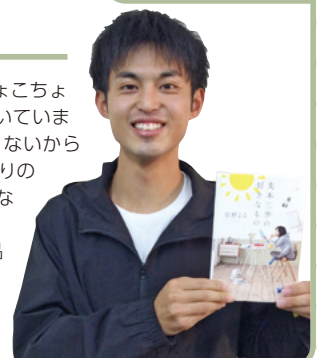 ょこちょ
いていま
ないから
りの
な
麦本三歩の
好きなもの
住野よる